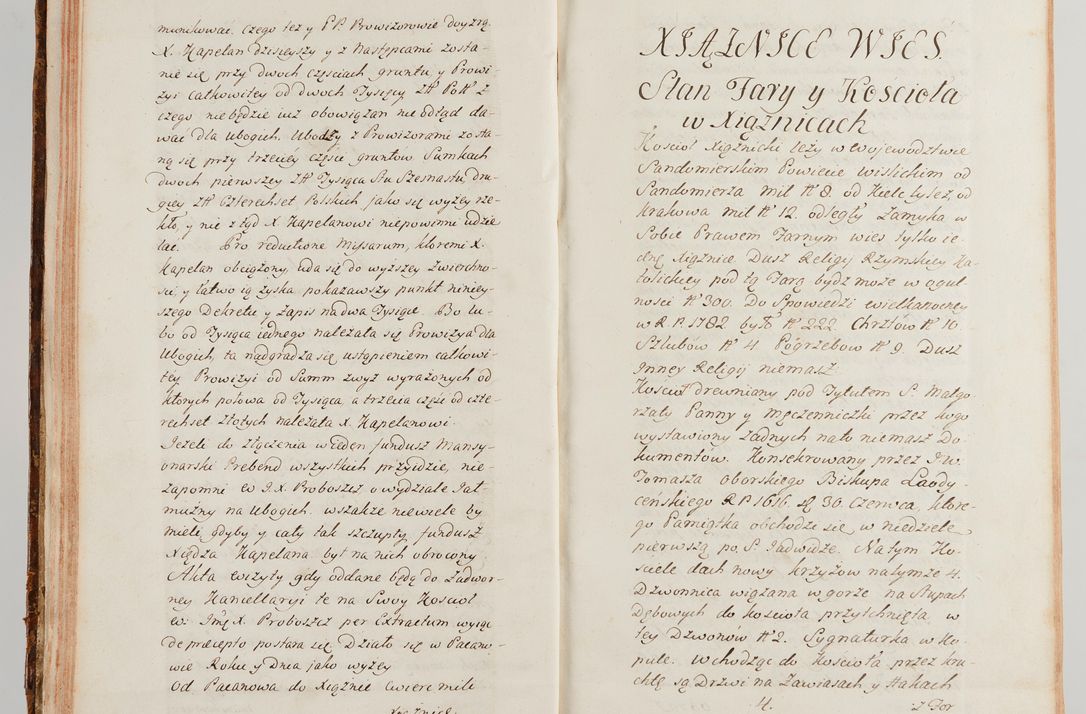 munikować. Czego też y PP. Prowizorowie doyzrą.
X. Kapelan dzisieyszy y z Następcami zosta-
nie się przy dwoch częściach gruntu, y Prowi-
zyi całkowitey od dwoch Tysięcy Zł. Pol. z
czego niebędzie iuż obowiązan nic odtąd da-
wać dla Ubogich. Ubodzy z Prowizorami zosta-
ną się przy trzeciey częsci gruntow Sumkach
dwoch pierwszey Zł Tysiąca Stu Szesnastu dru-
giey Zł Czterechset Polskich jako się wyżey rze-
kło, y nic z tąd X Kapelanowi niepowinni udzie
lać. Pro reductione Missarum, ktoremi X.
Kapelan obciążony, uda się do wyższey Zwierchno-
ści, y łatwo ią zyska pokazawszy punkt niniey-
szego Dekretu y Zapis na dwa Tysiące. Bo lu-
bo od Tysiąca iednego należała się Prowizya dla
Ubogich, ta nadgradza się ustąpieniem całkowi-
tey Prowizyi od Summ zwyż wyrażonych od
ktorych połowa od Tysiąca, a trzecia część od czte-
rechset złotych należała X. Kapelanowi.
Jeżeli do złączenia w ieden fundusz Mansy-
onarski Prebend wszystkich przyidzie, nie-
zapomni W J.X. Proboszcz o wydziale Jał-
mużny na Ubogich. wszakże niewiele by
mieli gdyby y cały tak szczupły fundusz
Xiędza Kapelana był na nich obrocony.
Akta wizyty gdy oddane będą do Zadwor-
ney Kancellaryi te na Swoy Kosciół
W. Jmć X. Proboszcz per Extractum wyiąć
de præcepto postara się. Działo się w Pacano-
wie Roku y Dnia jako wyżey
Od Pacanowa do Xiążnic ćwierć mili
Xiążnice
XIĄŻNICE WIES.
Stan Fary y Kościoła
w Xiążnicach
Kościoł Xiążnicki leży w Wojewodztwie
Sandomierskim Powiecie wislickim od
Sandomierza mil N 8. od Kielc tyleż, od
Krakowa mil N 12. odległy Zamyka w
Sobie Prawem Farnym wies tylko ie-
dnę Xiążnice Dusz Religij Rzymskiey Ka-
tolickiey pod tą Farą bydz może w ogul
ności N 300. Do Spowiedzi wielkanocney
w R.P. 1782 było N 222. Chrztów N 10.
Szlubów N 4. Pógrzebow N 9. Dusz
Inney Religij niemasz.
Kościoł drewniany pod Tytułem S. Małgo
rzaty Panny y męczenniczki przez kogo
wystawiony żadnych na to niemasz Do-
kumentów. Konsekrowany przez JW.
Tomasza oborskiego Biskupa Laody-
ceńskiego R.P. 1616. d. 30. Czerwca, ktore-
go Pamiątka obchodzi się w niedzielę
pierwszą po. S. Jadwidze. Na tym Ko-
sciele dach nowy krzyżow na tymże 4.
Dzwonnica wiązana w gorze na Słupach
Dębowych do kościoła przytchnięta, w
tey Dzwonów N 2. Sygnaturka w Ko-
pule. Wchodząc do Kościoła przez kru-
chtę są Drzwi na Zawiasach y Hakach
4. z For